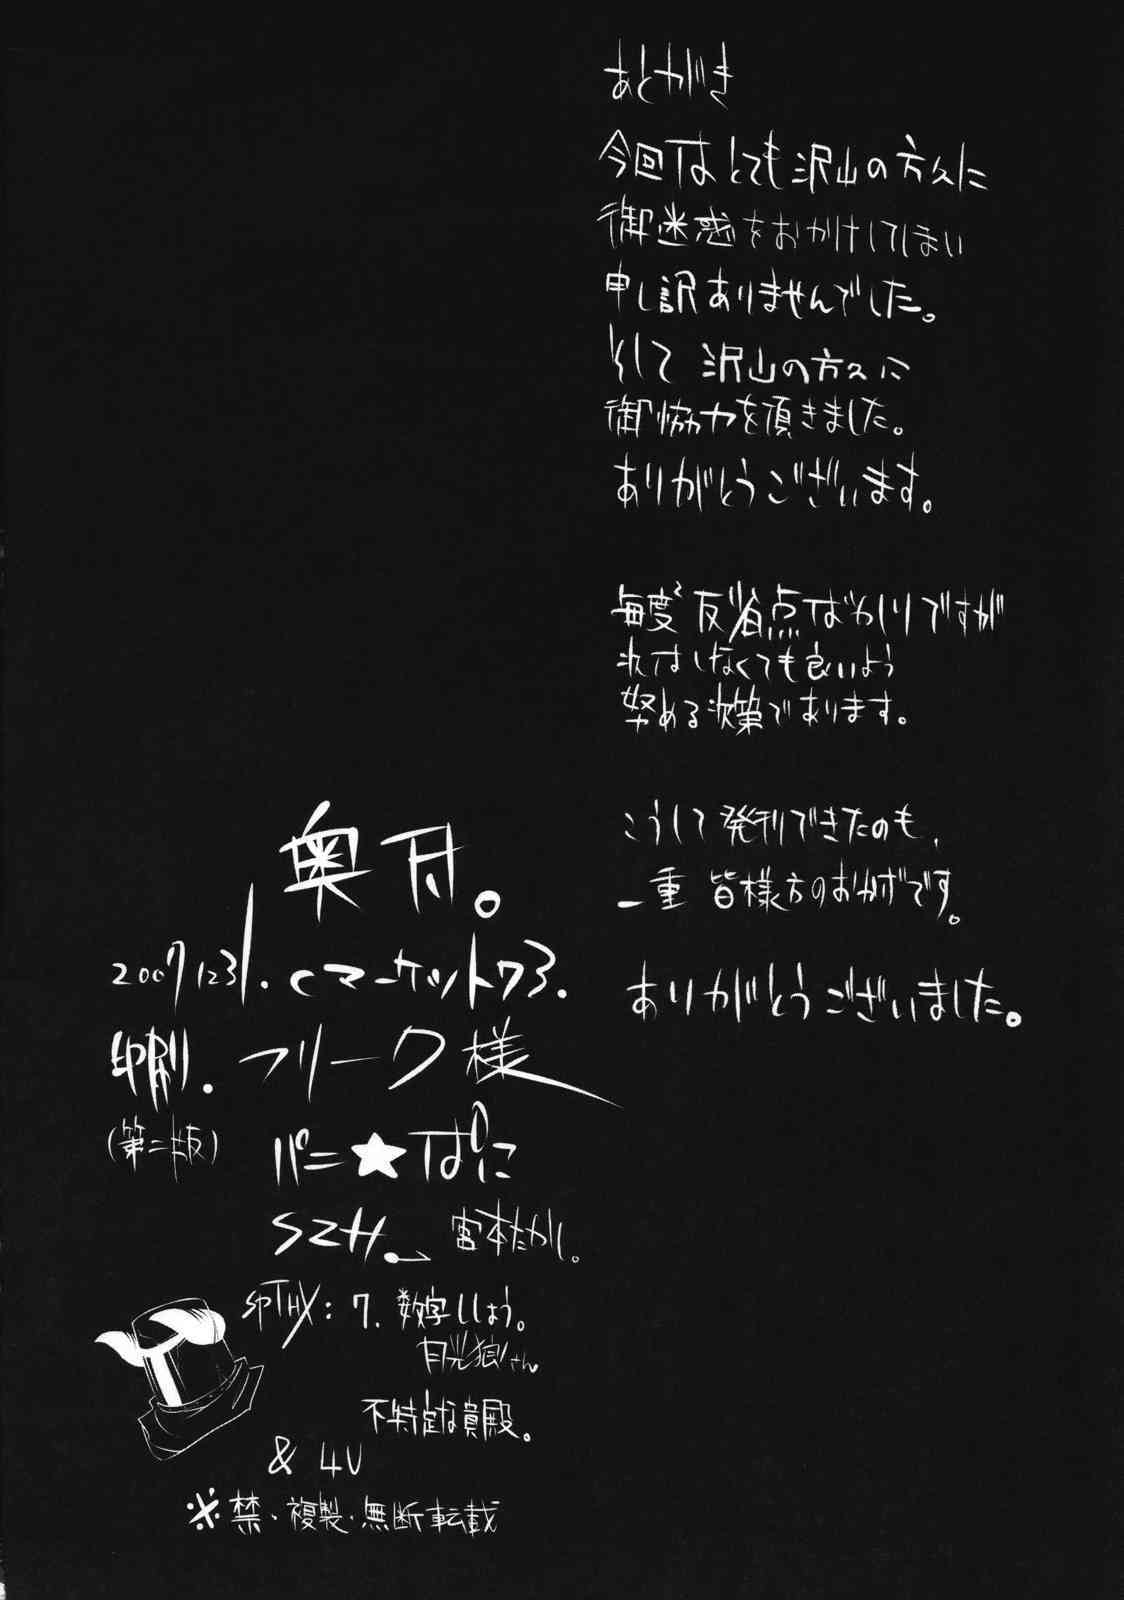 あとがき
今回はとても沢山の方々に
御迷惑をおかけしてしまい
申し訳ありませんでした。
そして 沢山の方々に
御協力を頂きました。
ありがとうございます。
毎度 反省点ばかりですが
次はしなくても良いよう
努める次第であります。
こうして発刊できたのも、
一重 皆様方のおかげです。
ありがとうございました。
奥付。
2007 12 31. cマーケット73.
印刷. フリーク様
(第二版)
パニ★ぱに
SZH. 宮本たかし。
SPTHX: 7. 数字しじょう。
月光狼さん
不特定な貴殿。
& 4U
※禁・複製・無断転載